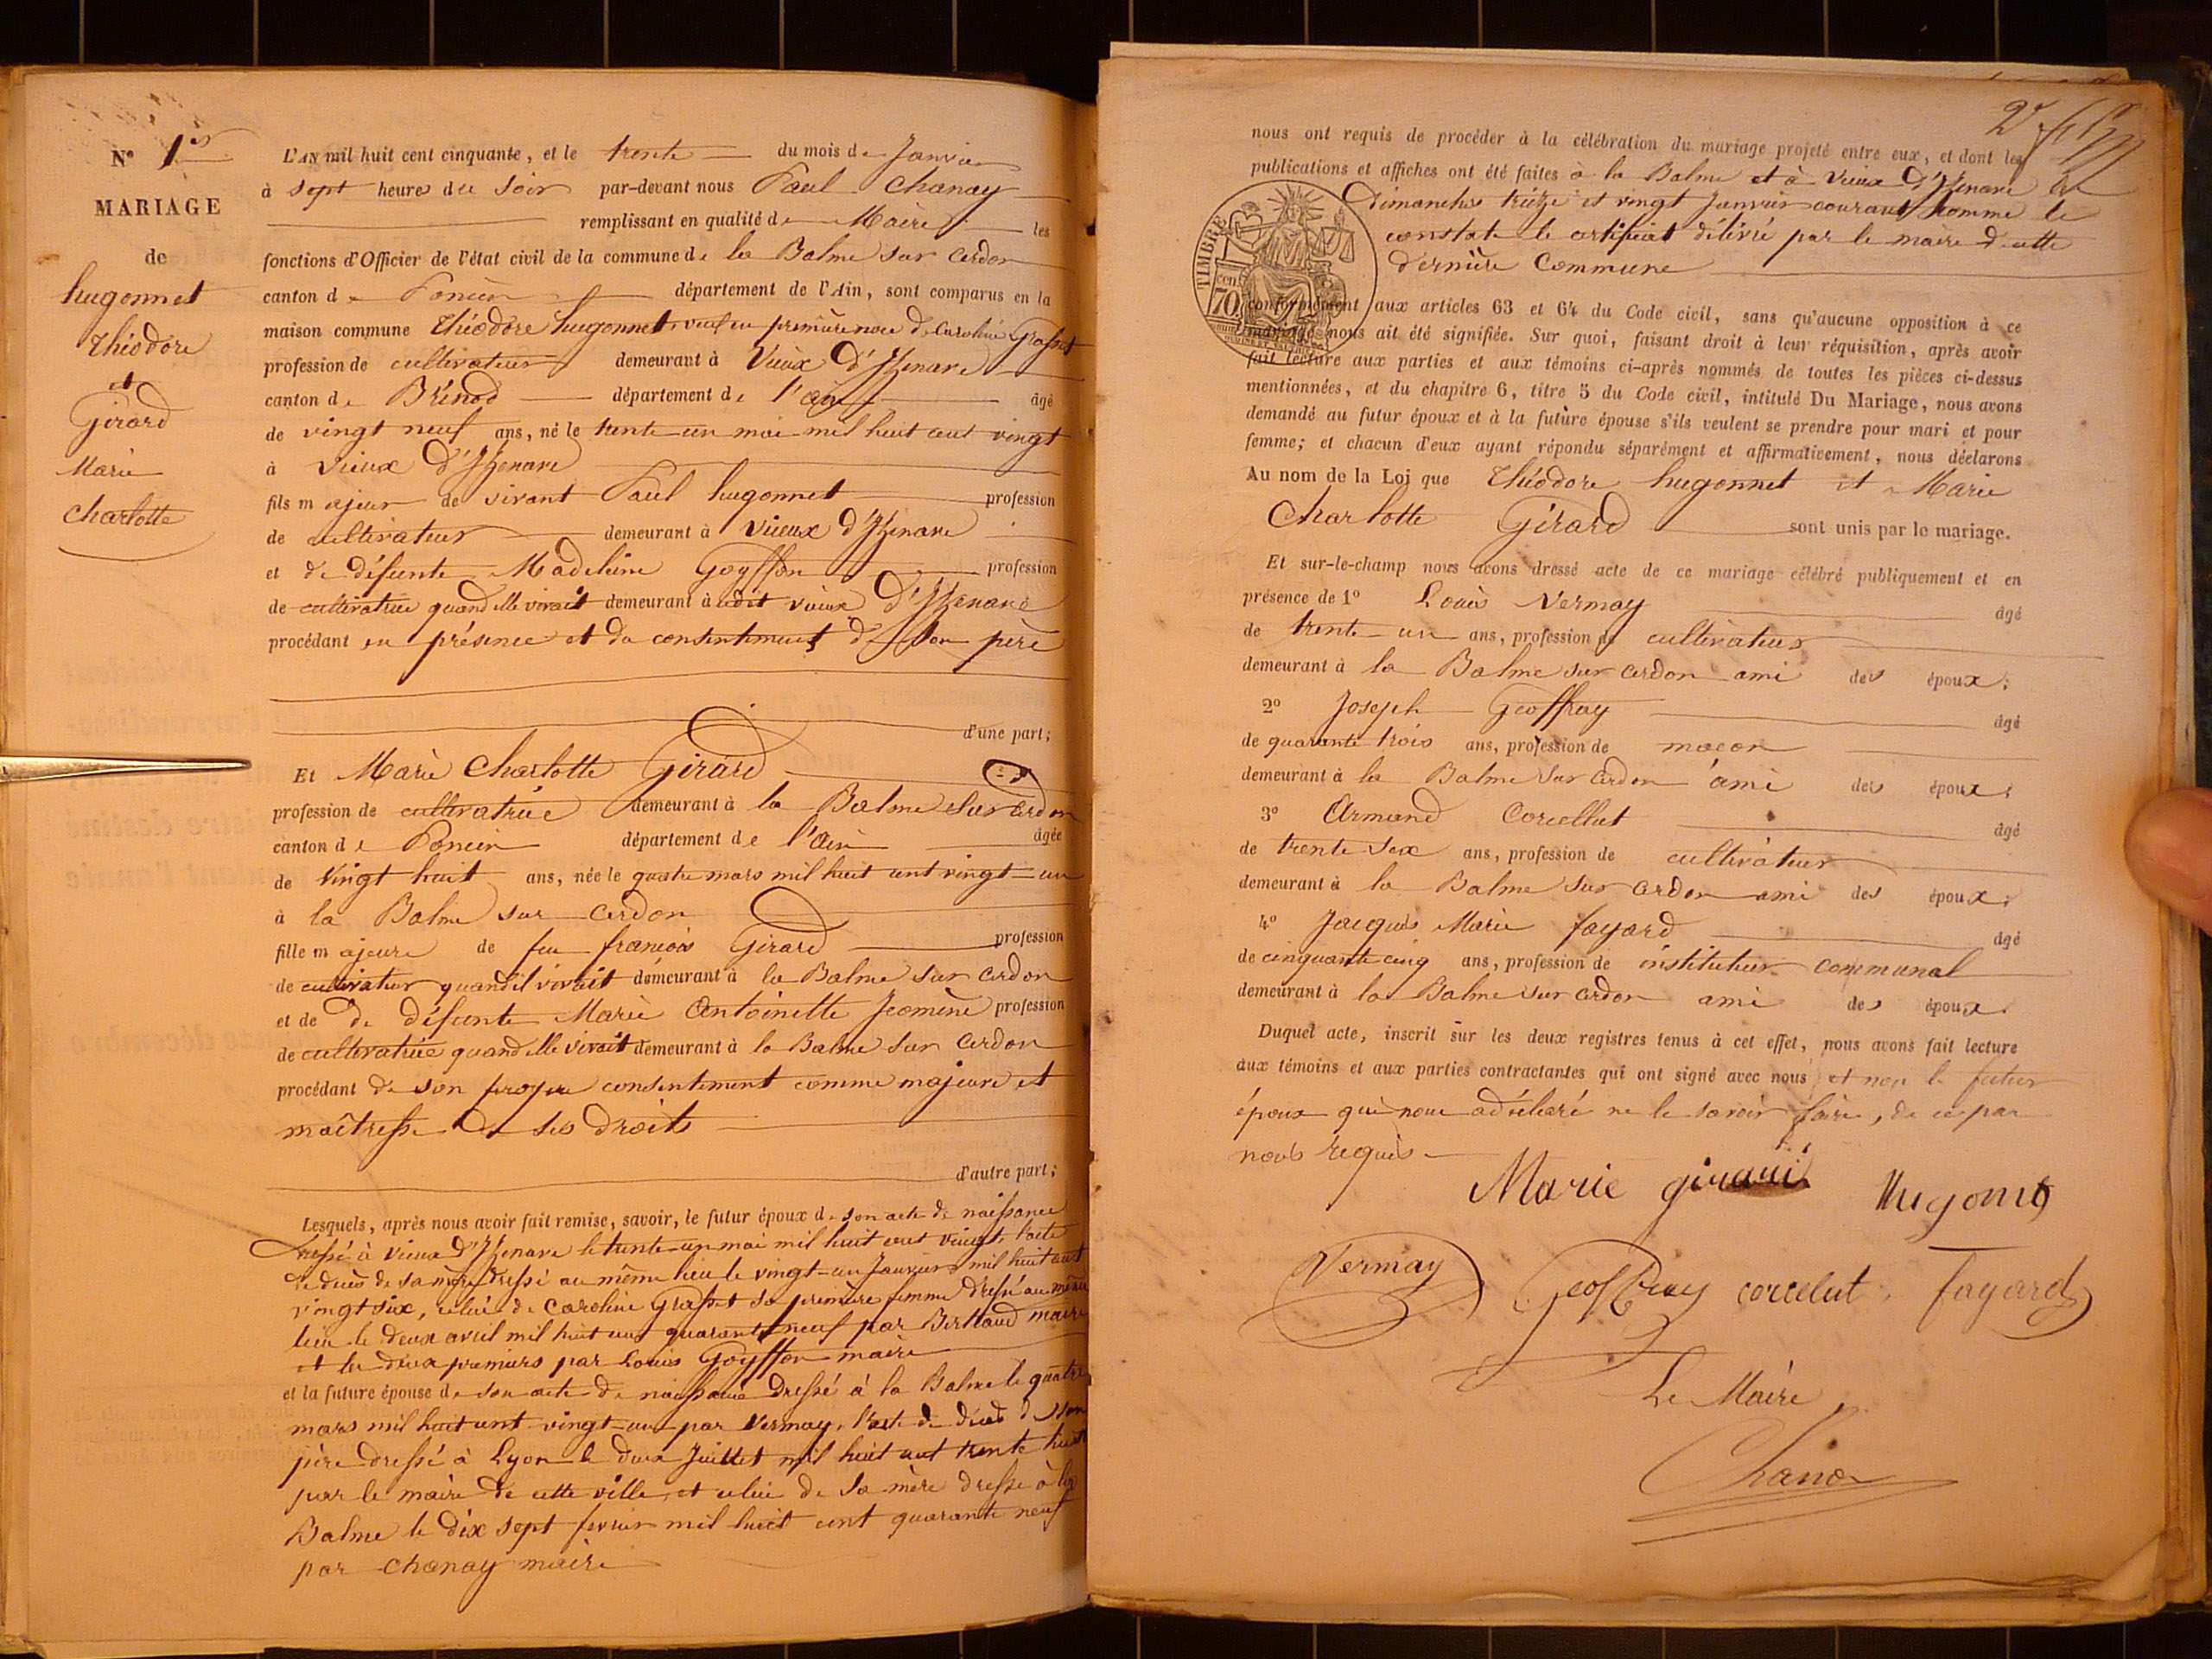 N° 1er
MARIAGE
de
hugonnet
Théodore
et
Girard
Marie
Charlotte
L'AN mil huit cent cinquante, et le trente du mois de Janvier
à sept heures du soir par-devant nous Paul Chanay
remplissant en qualité de Maire les
fonctions d'Officier de l'état civil de la commune de la Balme sur Cerdon
canton de Poncin département de l'Ain, sont comparus en la
maison commune Théodore hugonnet, veuf en première noce de Caroline Grasset
profession de cultivateur demeurant à Vieux d'Izenave
canton de Brénod département de l'ain âgé
de vingt neuf ans, né le trente un mai mil huit cent vingt
à Vieux d'Izenave
fils majeur de vivant Paul hugonnet profession
de cultivateur demeurant à Vieux d'Izenave
et de défunte Madelaine Goyffon profession
de cultivatrice quand elle vivait demeurant à udit vieux d'Izenave
procédant en présence et du consentement de son père
d'une part;
Et Marie Charlotte Girard
profession de cultivatrice demeurant à la Balme sur Cerdon
canton de Poncin département de l'Ain âgée
de vingt huit ans, née le quatre mars mil huit cent vingt-un
à la Balme sur Cerdon
fille majeure de feu francois Girard profession
de cultivateur quand il vivait demeurant à la Balme sur Cerdon
et de de défunte Marie Antoinette profession
de cultivatrice quand elle vivait demeurant à la Balme sur Cerdon
procédant de son propre consentement comme majeure et
maîtresse de ses droits
d'autre part;
Lesquels, après nous avoir fait remise, savoir, le futur époux de son acte de naissance
dressé à vieux d'Izenave le trente-un mai mil huit cent vingt, l'acte
de décès de sa mère dressé au même lieu le vingt-un Janvier mil huit cent
vingt six, celui de Caroline Grasset sa première femme dressé au même
lieu le deux avril mil huit cent quarante neuf par Berthaud maire
et les deux premiers par Louis Goyffon maire
et la future épouse de son acte de naissance dressé à la Balme le quatre
mars mil huit cent vingt-un par Vermay, l'acte de décès de son
père dressé à Lyon le deux Juillet mil huit cent trente huit
par le maire de cette ville, et celui de sa mère dressé à la
Balme le dix sept fevrier mil huit cent quarante neuf
par chanay maire
2e
nous ont requis de procéder à la célébration du mariage projeté entre eux, et dont les
publications et affiches ont été faites à la Balme et à Vieux d'Izenave les
Dimanches treize et vingt Janvier courant comme le
constate le certificat délivré par le maire de cette
dernière Commune
TIMBRE
cent
70
conformément aux articles 63 et 64 du Code civil, sans qu'aucune opposition à ce
mariage nous ait été signifiée. Sur quoi, faisant droit à leur réquisition, après avoir
fait lecture aux parties et aux témoins ci-après nommés de toutes les pièces ci-dessus
mentionnées, et du chapitre 6, titre 5 du Code civil, intitulé Du Mariage, nous avons
demandé au futur époux et à la future épouse s'ils veulent se prendre pour mari et pour
femme; et chacun d'eux ayant répondu séparément et affirmativement, nous déclarons
Au nom de la Loi que Théodore hugonnet et Marie
Charlotte Girard sont unis par le mariage.
Et sur-le-champ nous avons dressé acte de ce mariage célébré publiquement et en
présence de 1° Louis Vermay âgé
de trente-un ans, profession de cultivateur
demeurant à la Balme sur Cerdon ami des époux;
2° Joseph Geoffray âgé
de quarante trois ans, profession de maçon
demeurant à la Balme sur Cerdon ami des époux;
3° Armand Corcellut âgé
de trente-six ans, profession de cultivateur
demeurant à la Balme sur Cerdon ami des époux;
4° Jacques Marie fayard âgé
de cinquante cinq ans, profession de instituteur communal
demeurant à la Balme sur Cerdon ami des époux.
Duquel acte, inscrit sur les deux registres tenus à cet effet, nous avons fait lecture
aux témoins et aux parties contractantes qui ont signé avec nous et non le futur
époux qui nous a déclaré ne le savoir faire, de ce par
nous requis
Marie girard Hugonet
Vermay Geoffray corcelut Fayard
Le Maire
Chanay